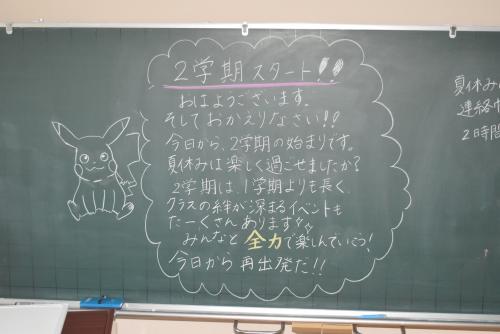 2学期スタート!!
おはようございます。
そしておかえりなさい!!
今日から、2学期の始まりです。
夏休みは楽しく過ごせましたか?
2学期は、1学期よりも長く、
クラスの絆が深まるイベントも
たーくさんあります
みんなと全力で楽しんでいこう!
今日から再出発だ!!
夏休み
連絡
2時間